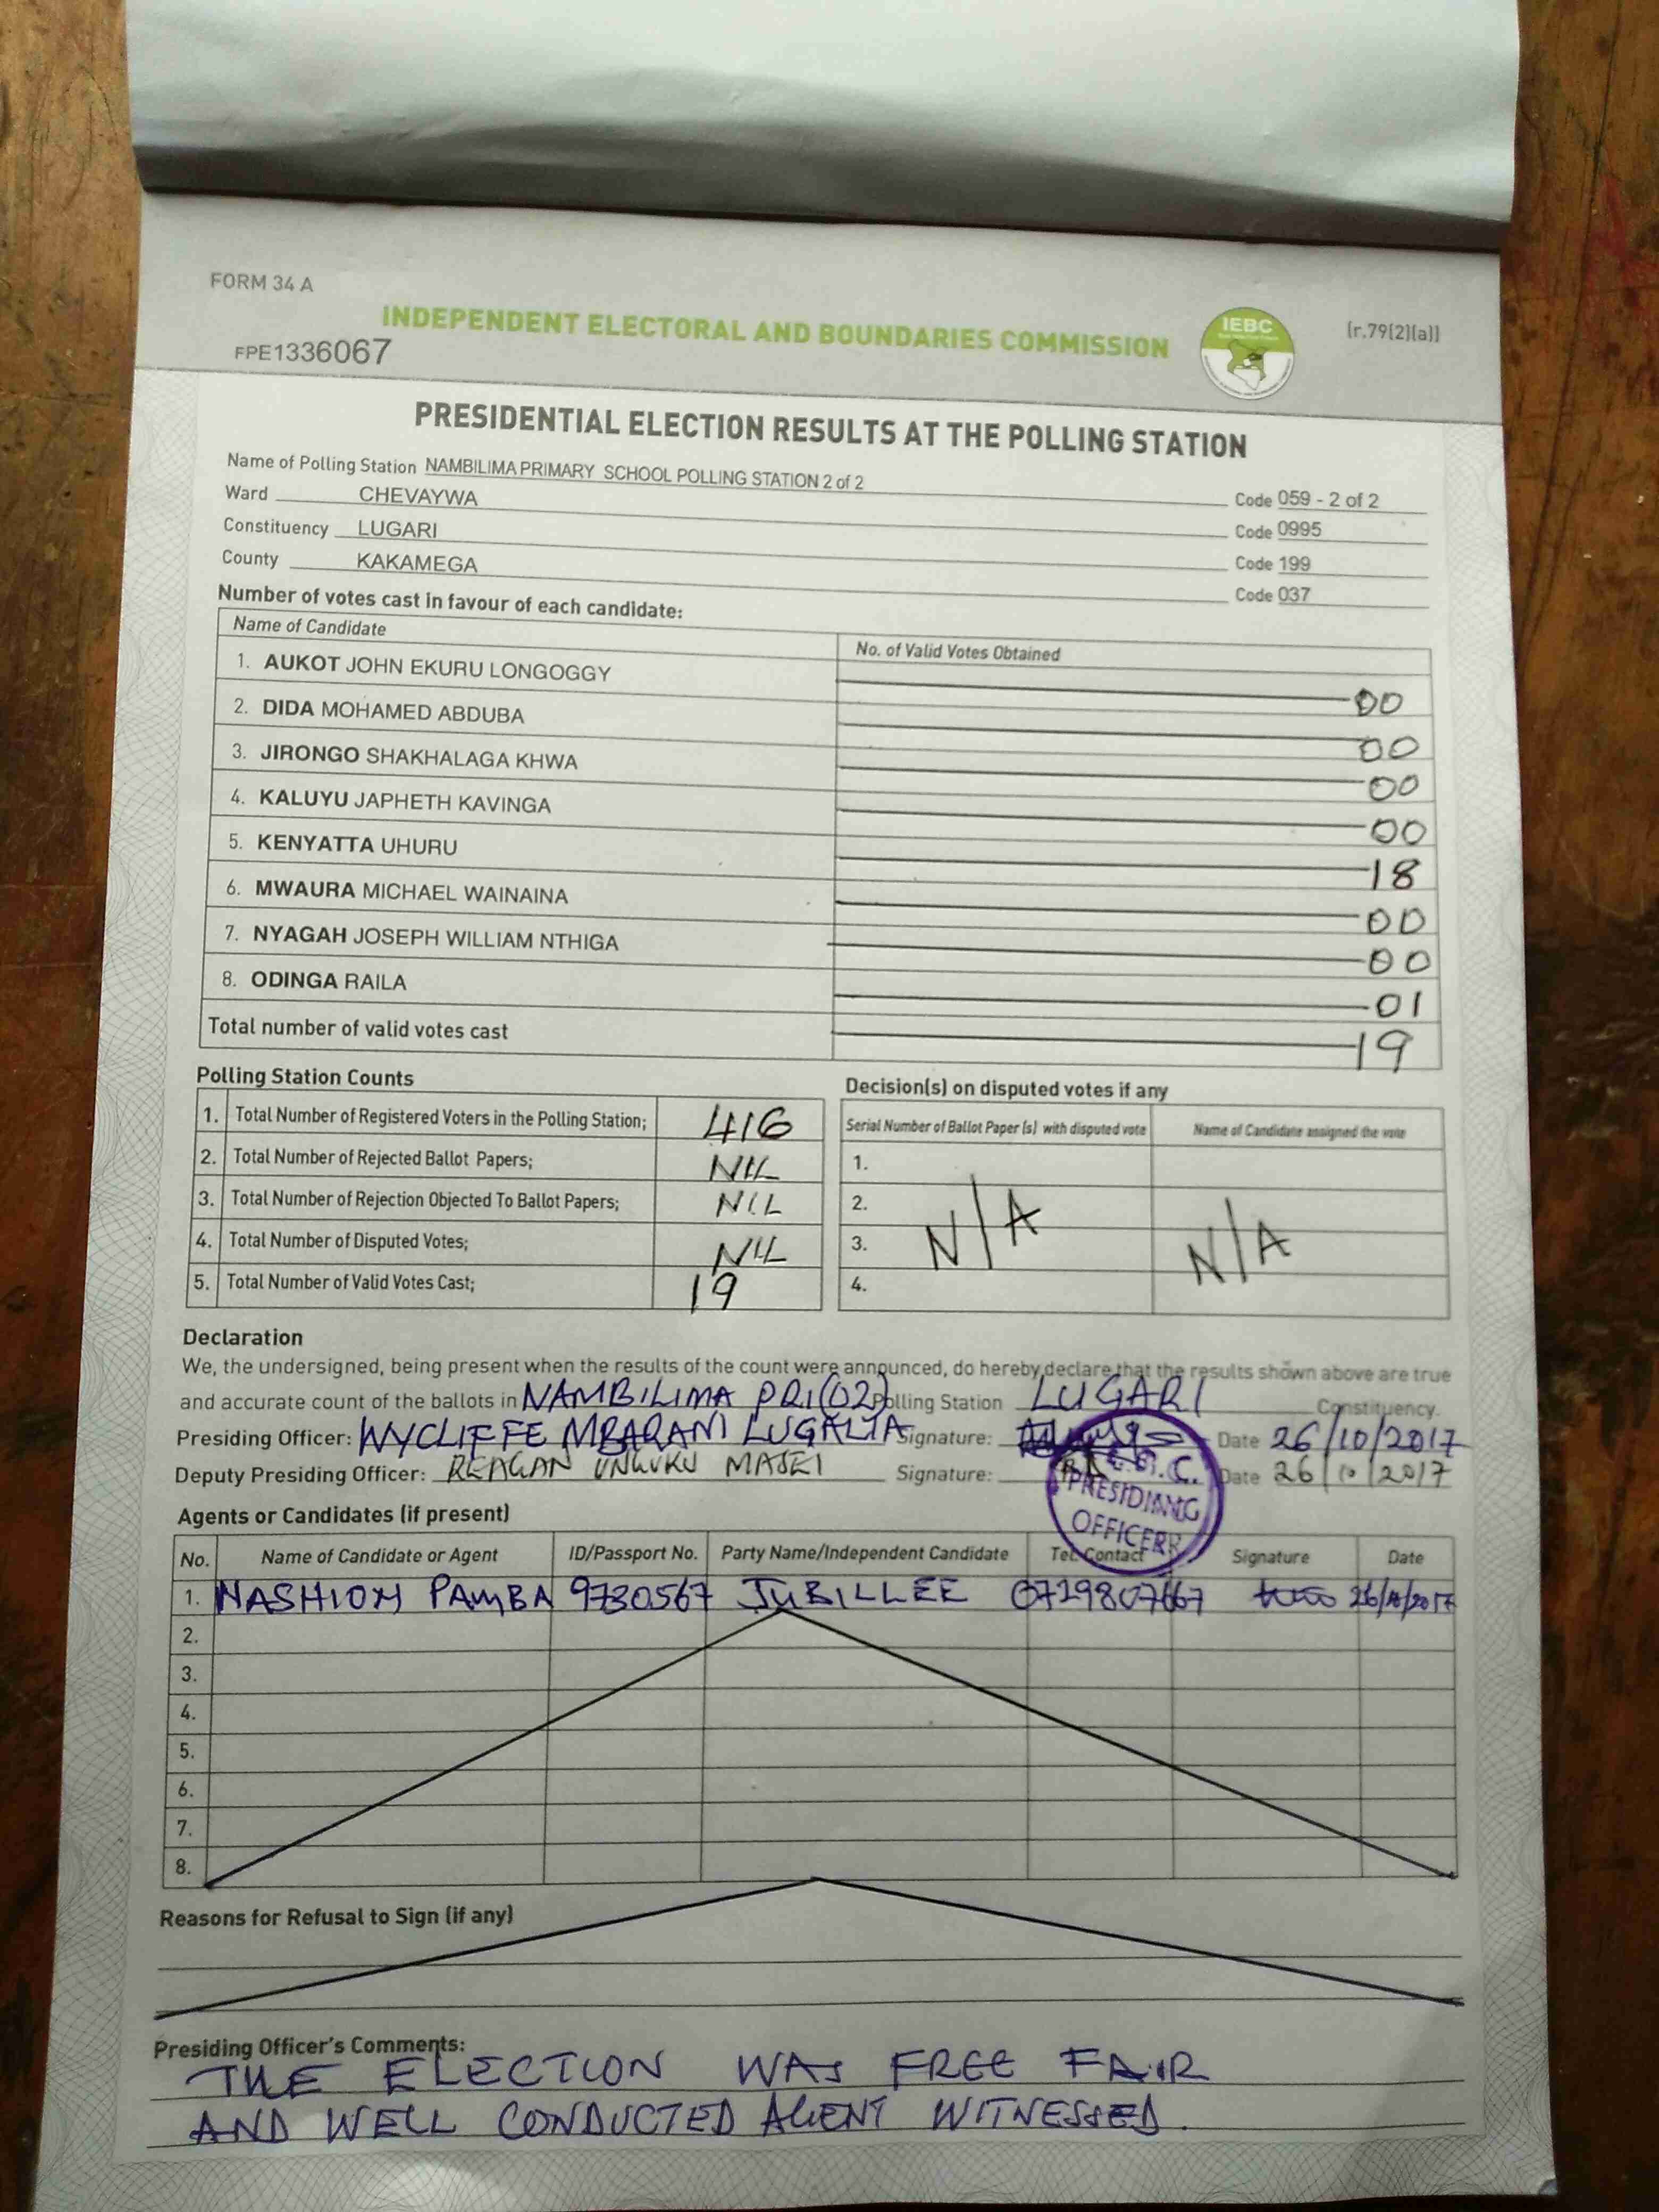 FORM 34 A
INDEPENDENT ELECTORAL AND BOUNDARIES COMMISSION
IEBC
(r.79(2)(a))
FPE1336067
PRESIDENTIAL ELECTION RESULTS AT THE POLLING STATION
Name of Polling Station NAMBILIMA PRIMARY SCHOOL POLLING STATION 2 of 2 Code 059 - 2 of 2
Ward CHEVAYWA Code 0995
Constituency LUGARI Code 199
County KAKAMEGA Code 037
Number of votes cast in favour of each candidate:
Name of Candidate No. of Valid Votes Obtained
1. AUKOT JOHN EKURU LONGOGGY 00
2. DIDA MOHAMED ABDUBA 00
3. JIRONGO SHAKHALAGA KHWA 00
4. KALUYU JAPHETH KAVINGA 00
5. KENYATTA UHURU 18
6. MWAURA MICHAEL WAINAINA 00
7. NYAGAH JOSEPH WILLIAM NTHIGA 00
8. ODINGA RAILA 01
Total number of valid votes cast 19
Polling Station Counts
1. Total Number of Registered Voters in the Polling Station; 416
2. Total Number of Rejected Ballot Papers; NIL
3. Total Number of Rejection Objected To Ballot Papers; NIL
4. Total Number of Disputed Votes; NIL
5. Total Number of Valid Votes Cast; 19
Decision(s) on disputed votes if any
Serial Number of Ballot Paper (s) with disputed vote Name of Candidate assigned the vote
1.
2.
3. N/A N/A
4.
Declaration
We, the undersigned, being present when the results of the count were announced, do hereby declare that the results shown above are true
and accurate count of the ballots in NAMBILIMA PRI(02) Polling Station LUGARI Constituency.
Presiding Officer: WYCLIFFE MBARANI LUGALIA Signature: Date 26/10/2017
Deputy Presiding Officer: REAGAN UNGUKU Signature: Date 26/10/2017
PRESIDING
OFFICER
Agents or Candidates (if present)
No. Name of Candidate or Agent ID/Passport No. Party Name/Independent Candidate Tel. Contact Signature Date
1. NASHION PAMBA 9730567 JUBILLEE 0729807667 26/10/2017
2.
3.
4.
5.
6.
7.
8.
Reasons for Refusal to Sign (if any)
Presiding Officer's Comments:
THE ELECTION WAS FREE FAIR
AND WELL CONDUCTED AGENT WITNESSED.